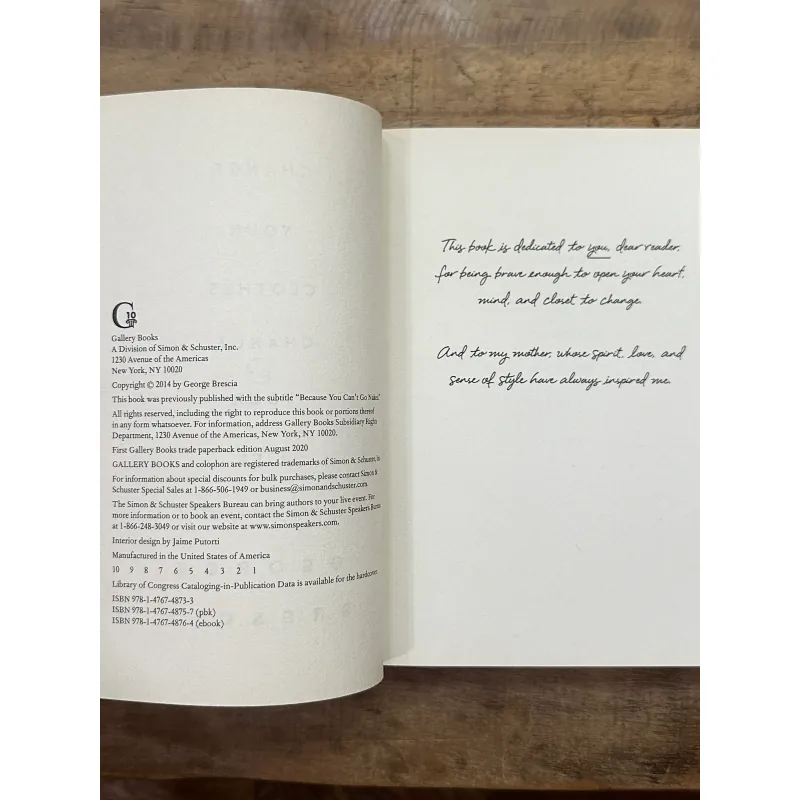 G
10
Gallery Books
A Division of Simon & Schuster, Inc.
1230 Avenue of the Americas
New York, NY 10020
Copyright © 2014 by George Brescia
This book was previously published with the subtitle "Because You Can't Go Naked"
All rights reserved, including the right to reproduce this book or portions thereof
in any form whatsoever. For information, address Gallery Books Subsidiary Rights
Department, 1230 Avenue of the Americas, New York, NY 10020.
First Gallery Books trade paperback edition August 2020
GALLERY BOOKS and colophon are registered trademarks of Simon & Schuster,
For information about special discounts for bulk purchases, please contact Simon &
Schuster Special Sales at 1-866-506-1949 or business@simonandschuster.com.
The Simon & Schuster Speakers Bureau can bring authors to your live event. For
more information or to book an event, contact the Simon & Schuster Speakers Bureau
at 1-866-248-3049 or visit our website at www.simonspeakers.com.
Interior design by Jaime Putorti
Manufactured in the United States of America
10 9 8 7 6 5 4 3 2 1
Library of Congress Cataloging-in-Publication Data is available for the hardcover.
ISBN 978-1-4767-4873-3
ISBN 978-1-4767-4875-7 (pbk)
ISBN 978-1-4767-4876-4 (ebook)
This book is dedicated to you, dear reader,
for being brave enough to open your heart,
mind, and closet to change.
And to my mother, whose spirit, love, and
sense of style have always inspired me.